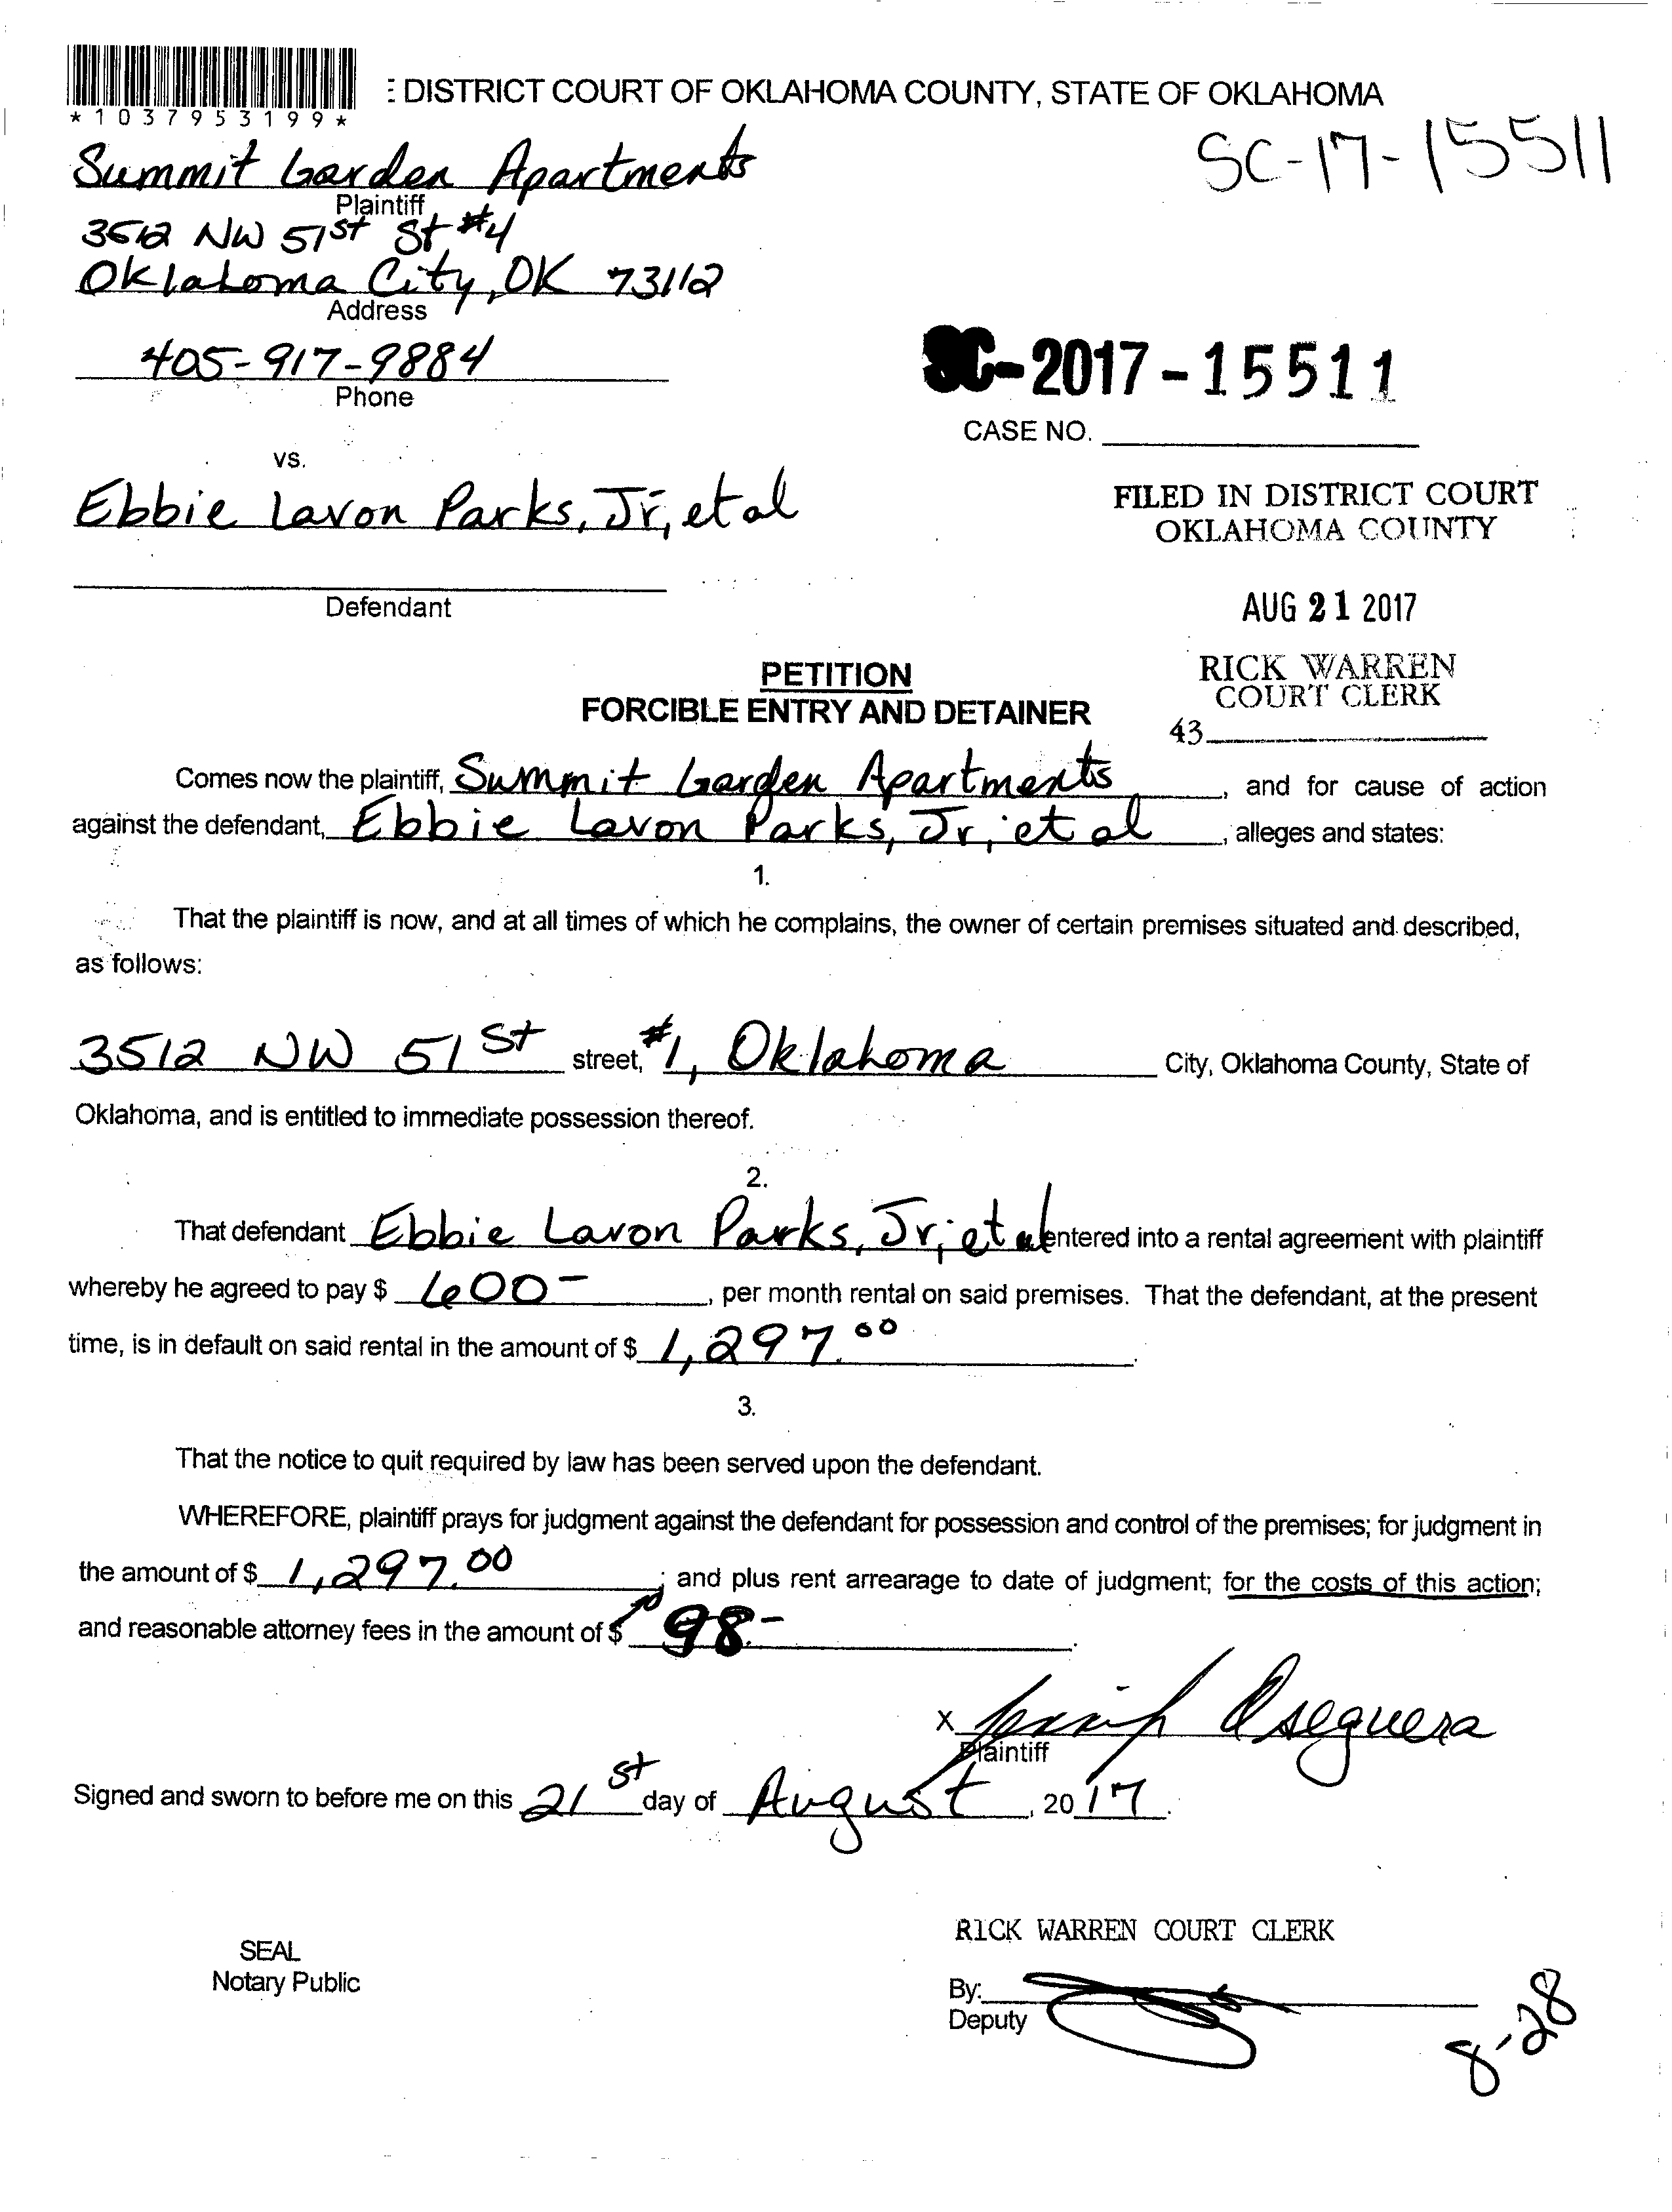 : DISTRICT COURT OF OKLAHOMA COUNTY, STATE OF OKLAHOMA
* 1 0 3 7 9 5 3 1 9 9 *
SC-17-15511
Summit Garden Apartments
Plaintiff
3512 NW 51st St #4
Oklahoma City, OK 73112
Address
405-917-9884
Phone
SC-2017-15511
CASE NO.
vs.
Ebbie Lavon Parks, Jr, et al
FILED IN DISTRICT COURT
OKLAHOMA COUNTY
Defendant
AUG 21 2017
PETITION
FORCIBLE ENTRY AND DETAINER
RICK WARREN
COURT CLERK
43
Comes now the plaintiff, Summit Garden Apartments, and for cause of action
against the defendant, Ebbie Lavon Parks, Jr, et al, alleges and states:
1.
That the plaintiff is now, and at all times of which he complains, the owner of certain premises situated and described,
as follows:
3512 NW 51 St street, #1, Oklahoma City, Oklahoma County, State of
Oklahoma, and is entitled to immediate possession thereof.
2.
That defendant Ebbie Lavon Parks, Jr, et al entered into a rental agreement with plaintiff
whereby he agreed to pay $ 600-, per month rental on said premises. That the defendant, at the present
time, is in default on said rental in the amount of $ 1,297.00.
3.
That the notice to quit required by law has been served upon the defendant.
WHEREFORE, plaintiff prays for judgment against the defendant for possession and control of the premises; for judgment in
the amount of $ 1,297.00; and plus rent arrearage to date of judgment; for the costs of this action;
and reasonable attorney fees in the amount of $ 98.-.
X Oseguera
Plaintiff
Signed and sworn to before me on this 21st day of August, 2017.
RICK WARREN COURT CLERK
SEAL
Notary Public
By:
Deputy
8-28